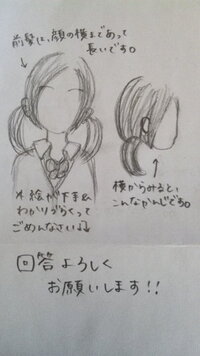 前髪は、顔の横まであって
長いです。
横からみると、
こんなかんじです。
*絵が下手&
わかりづらくって
ごめんなさい↓↓
回答よろしく
お願いします!!